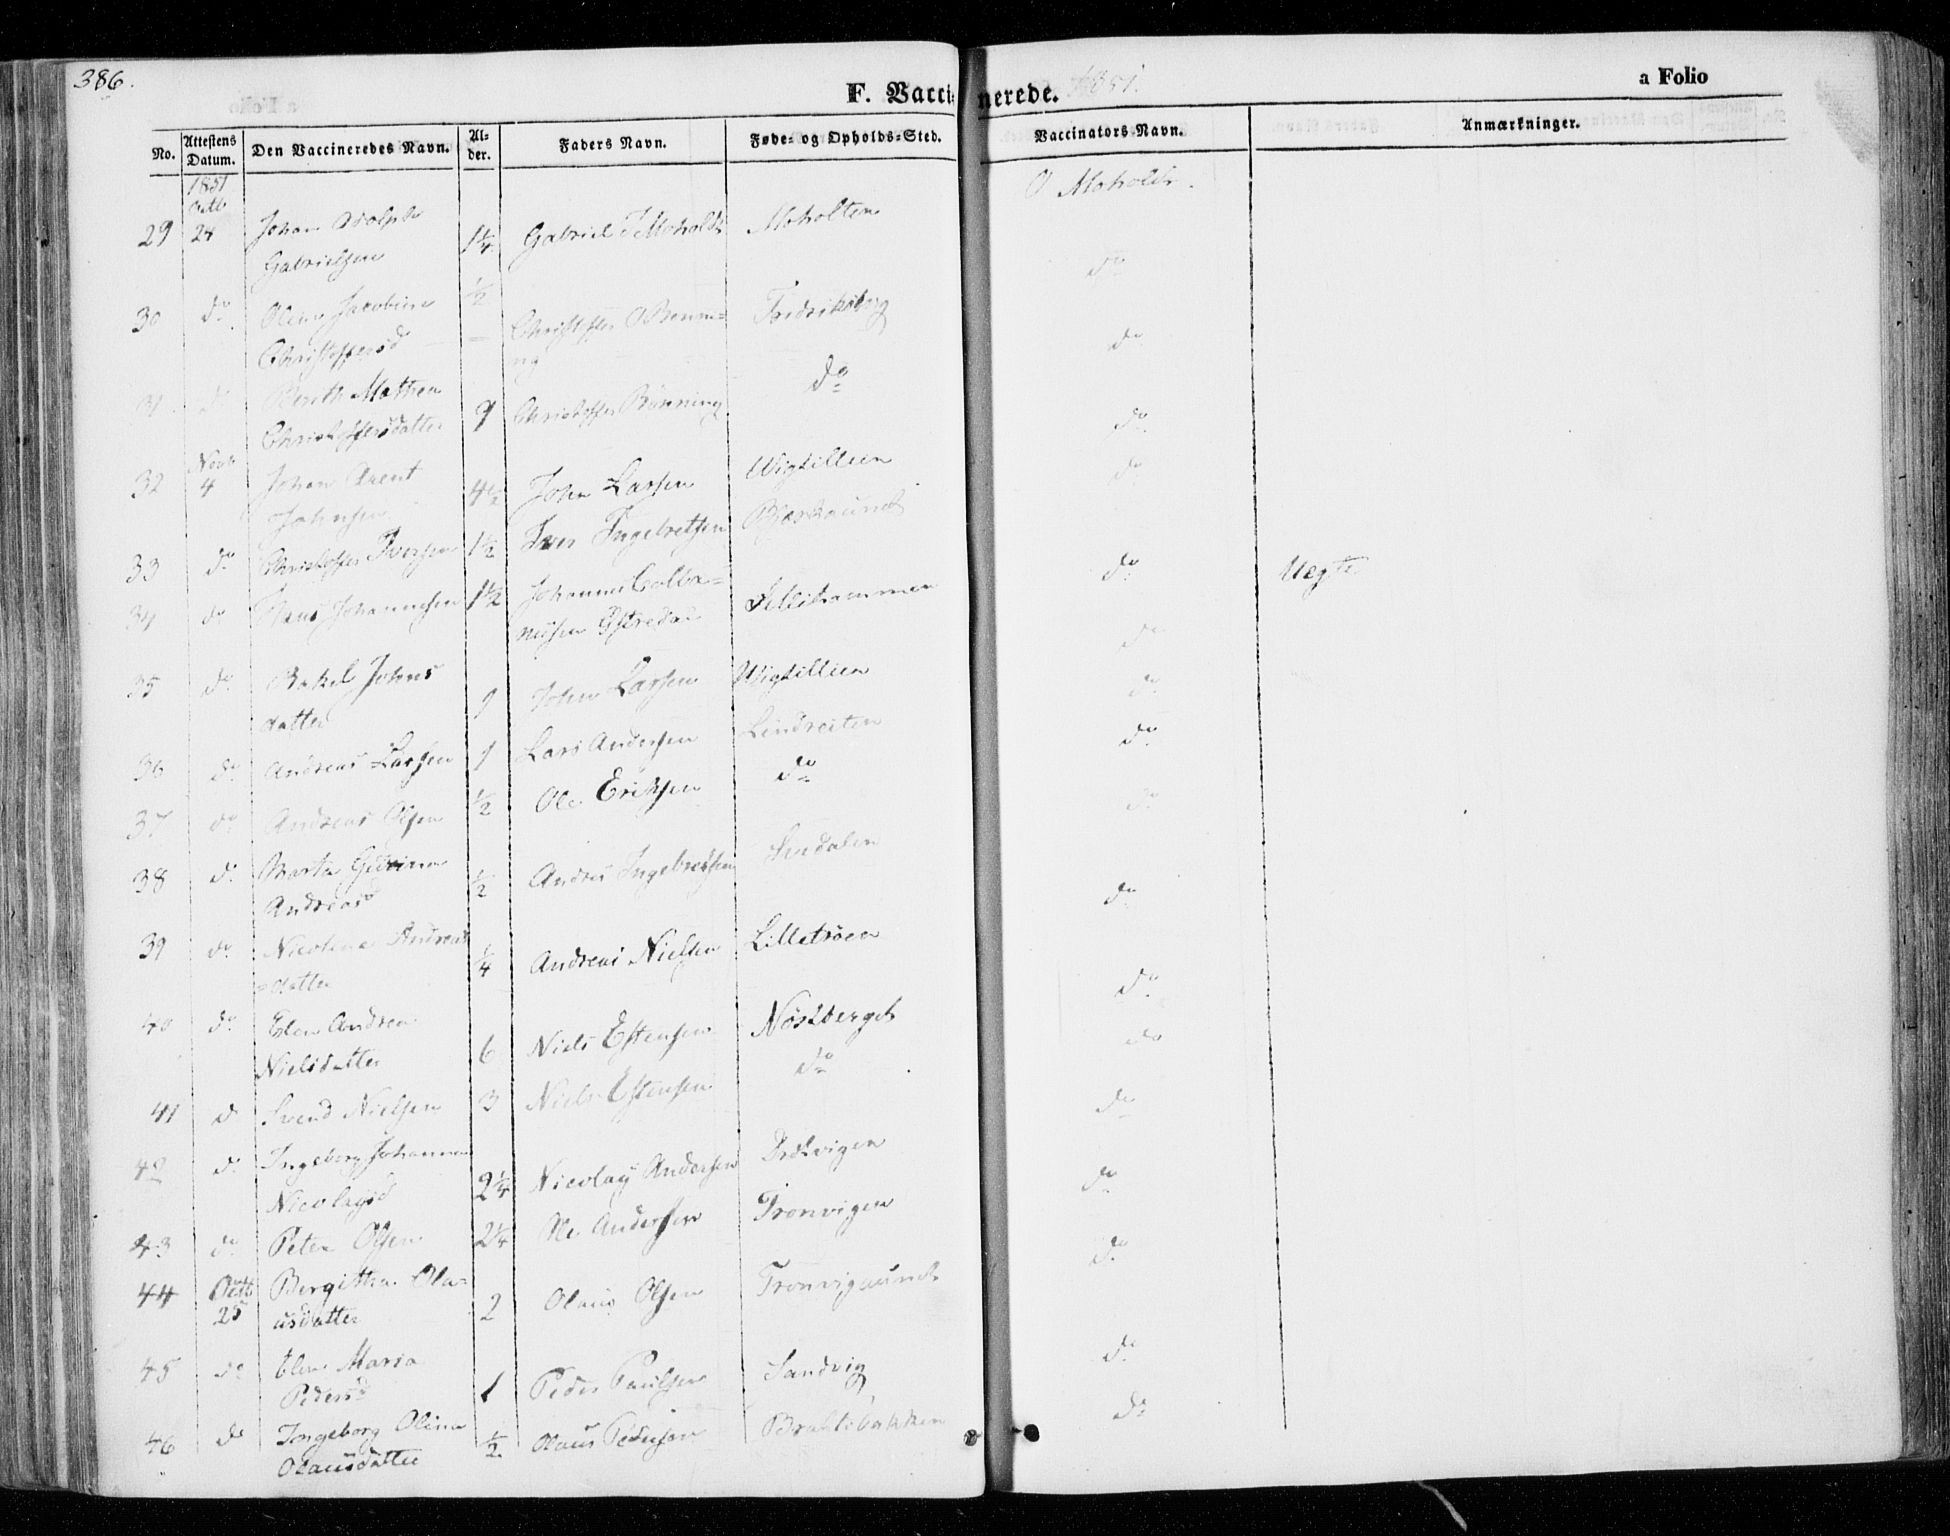 386.
F. Vaccinerede.
1851.
a Folio
No. Attestens Datum. Den Vaccineredes Navn. Alder. Faders Navn. Føde- og Opholds-Sted. Vaccinators-Navn. Anmærkninger.
1851
Octb
29 24 Johan Adolph 1¼ Gabriel J Moholdt Moholten O Moholdt.
Gabrielsen
30 do Oline Jacobine ½ Christoffer Fredriksberg do
Christoffersd
31 do Berith Mathea 9 Christoffer Rönning do do
Christoffersdatter
Novb
32 4 Johan Arent 4½ John Larsen Wigtillien do
Johnsen
33 do Christoffer Iversen 1½ Iver Ingebretsen do
34 do Hans Johannesen 1½ Johannes do Uægte
35 do Rakel Johns 9 John Larsen Wigtillien do
datter
36 do Andreas Larsen 1 Lars Andersen Lindreiten do
37 do Andreas Olsen ½ Ole Eriksen do do
38 do Marta ½ Andreas Ingebretsen do
Andreasd
39 do Nicoline Andreas ¼ Andreas Nielsen Lilletröen do
datter
40 do Elen Andrea 6 Niels Estensen do
Nielsdatter
41 do Svend Nielsen 3 Niels Estensen do do
42 do Ingeborg Johanna 2¼ Nicolay Andersen do
Nicolaysd
43 do Peter Olsen 2¼ Ole Andersen Tronvigen do
44 Octb Bergitha Ola- 2 Olaus Olsen do
25 usdatter
45 do Elen Maria 1 Peder Paulsen Sandvig do
Pedersd
46 do Ingeborg Olina ½ Olaus Pedersen do
Olausdatter